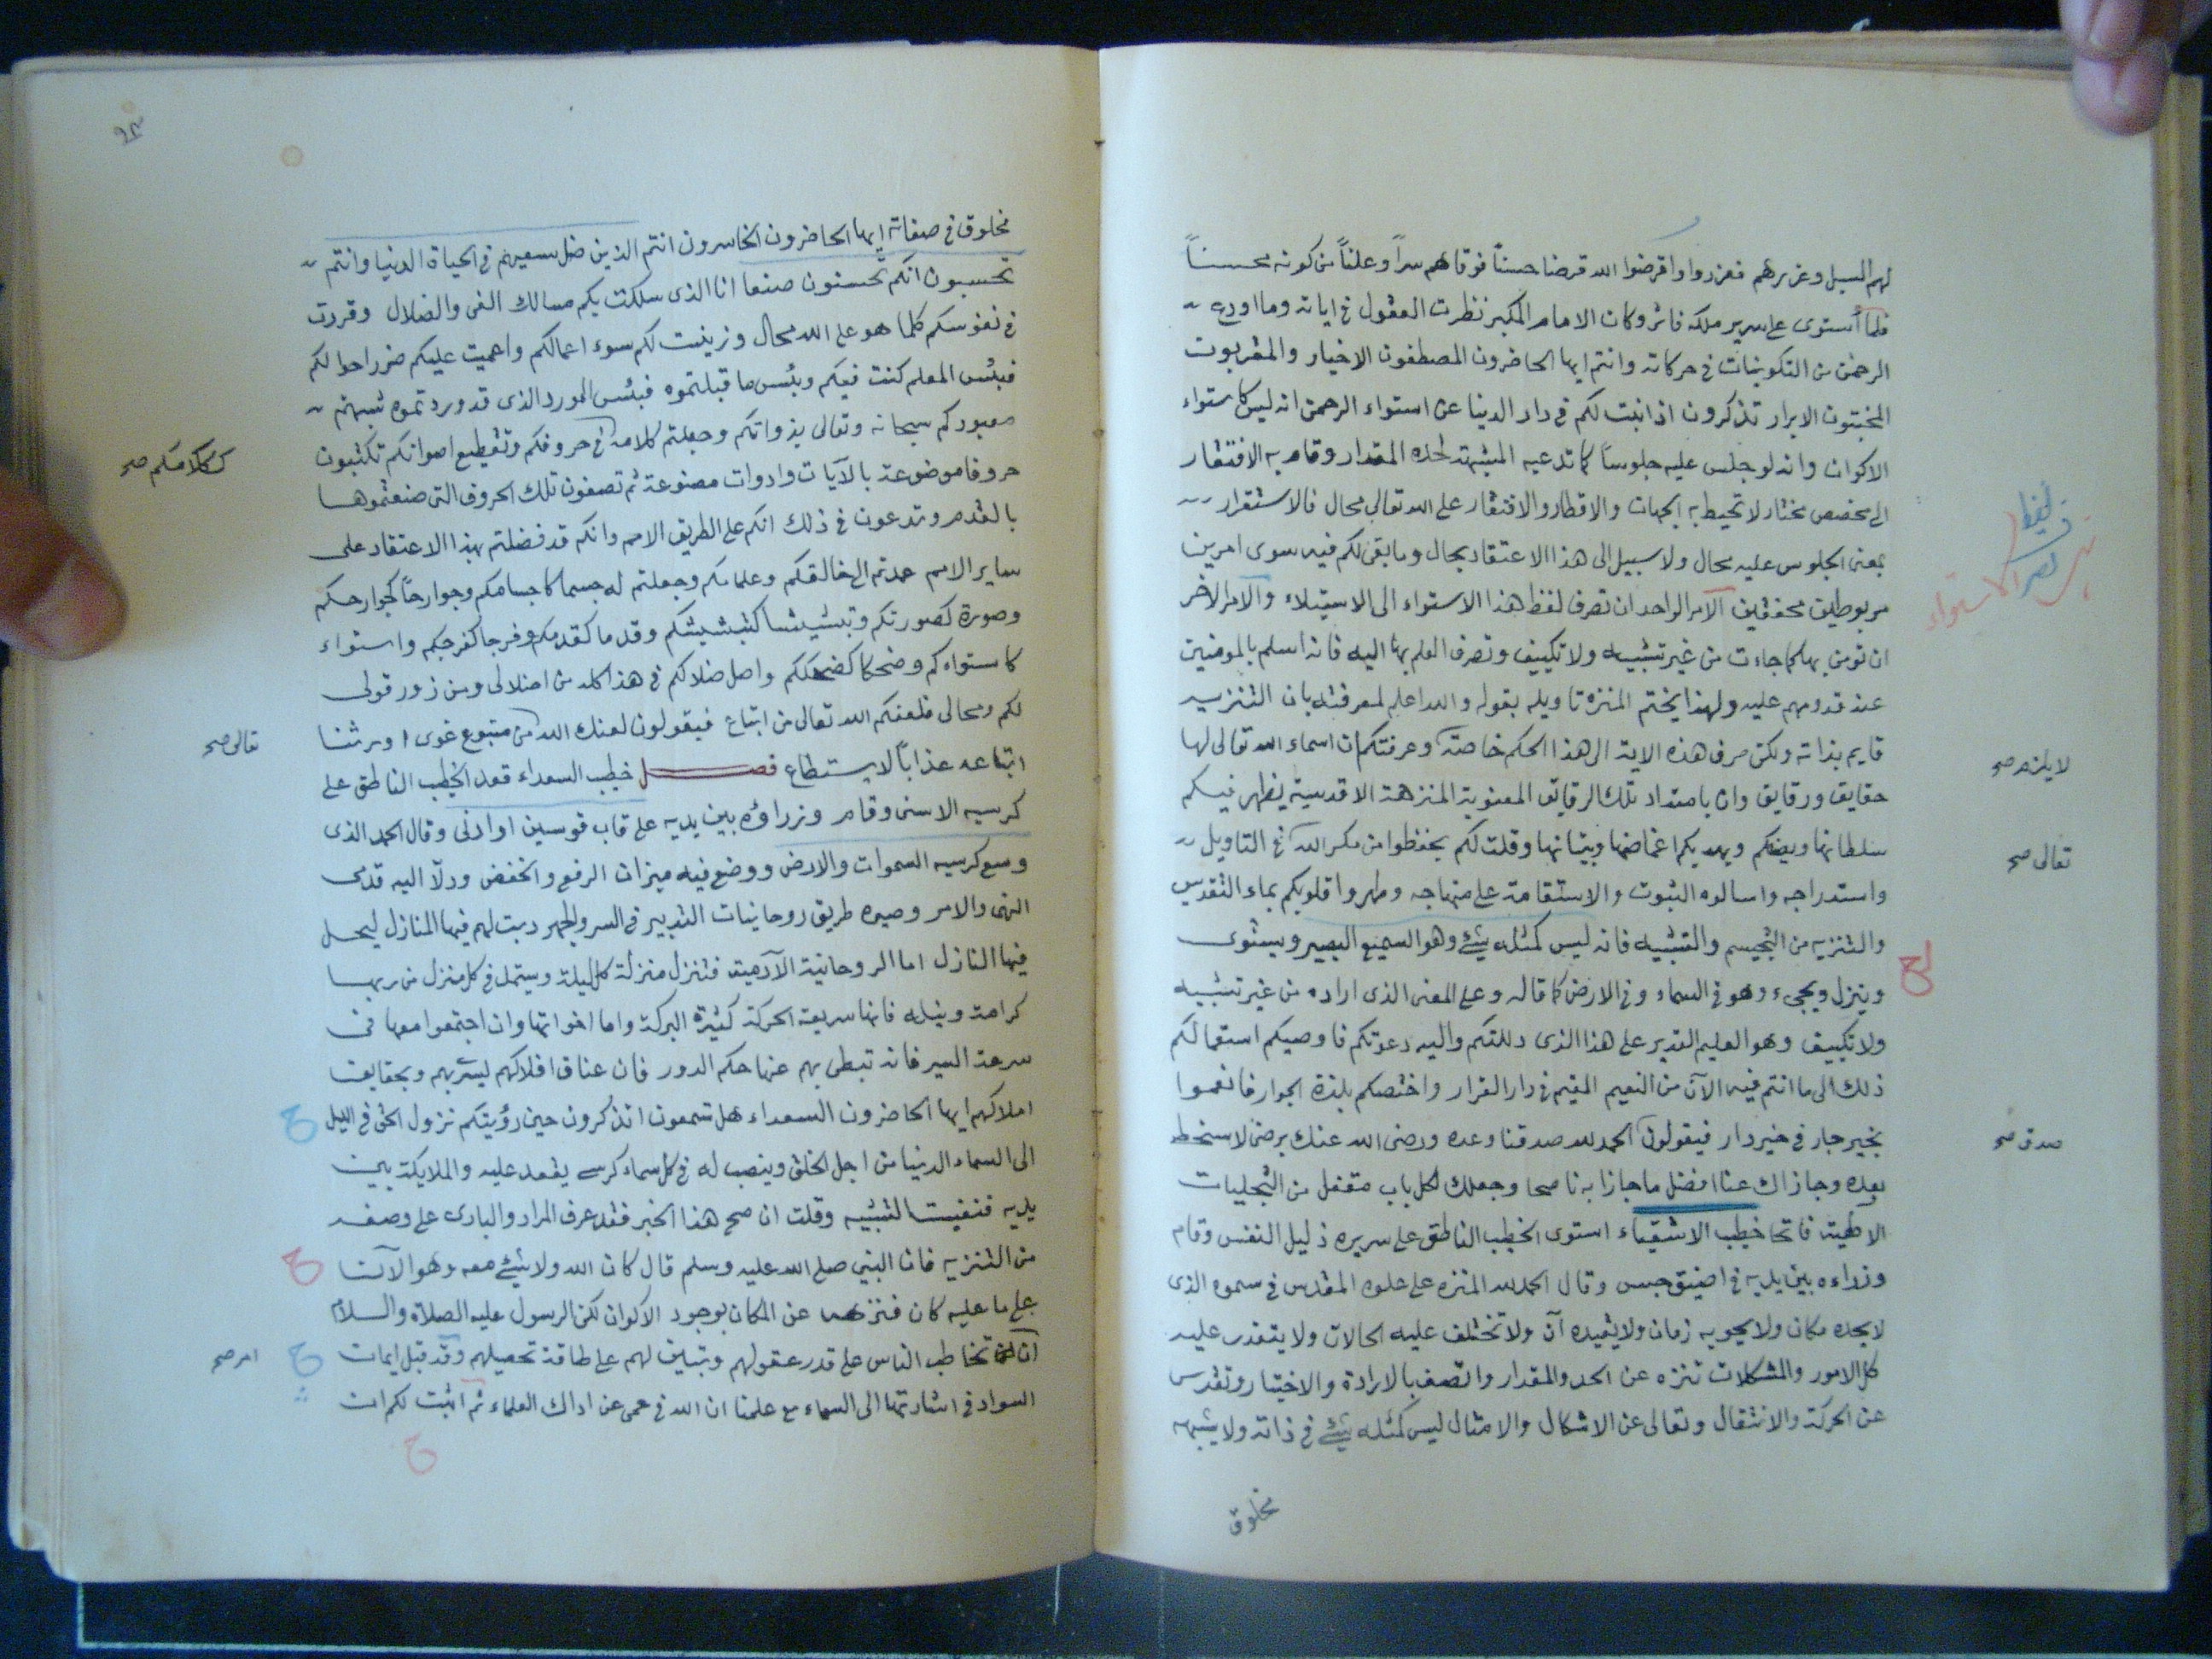 لهم السبل وعزيرهم فعزروا واقرضوا الله قرضا حسناً فوقاهم سراً وعلناً من كونه محسناً
فلما أستوى على سرير ملكه فائز وكان الامام المكبر نظرت العقول في اياته وما اودع
الرحمن من التكوينات في حركاته وانتم ايها الحاضرون المصطفون الاخيار والمقربون
المخبتون الابرار تذكرون اذ ابنت لكم في دار الدنيا عن استواء الرحمن انه ليس كاستواء
الاكوان وانه لو جلس عليه جلوساً كما تدعيه المشبهة لحده المقدار وقام به الافتقار
الى مخصص مختار لا تحيط به الجهات والاقطار والافتقار على الله تعالى محال فالاستقرار
بمعنى الجلوس عليه محال ولا سبيل الى هذا الاعتقاد بحال وما بقى لكم فيه سوى امرين
مربوطين محققين الامر الواحد ان تصرف لفظ هذا الاستواء الى الاستيلاء والامر الاخر
ان تومن بها كما جاءت من غير تشبيه ولا تكييف وتصرف العلم بها اليه فانه اسلم بالمومنين
عند قدومهم عليه ولهذا يختم المنزه تاويله بقوله والله اعلم لمعرفته بان التنزيه
قايم بذاته ولكن صرف هذه الاية الى هذا الحكم خاصة وعرفتكم ان اسماء الله تعالى لها
حقايق ورقايق وان بامتداد تلك الرقائق المعنوية المنزهة الاقدسية يظهر فيكم
سلطانها ويضلكم ويهديكم اغماضها وبيانها وقلت لكم تحفظوا من مكر الله في التاويل
واستدراجه واسالوه الثبوت والاستقامة على منهاجه وطهروا قلوبكم بماء التقديس
والتنزيه من التجسيم والتشبيه فانه ليس كمثله شئ وهو السميع البصير ويستوى
وينزل ويجيء وهو في السماء وفي الارض كما قاله وعلى المعنى الذى اراده من غير تشبيه
ولا تكييف وهو العليم القدير على هذا الذى دللتكم واليه دعوتكم فاوصيكم استعمالكم
ذلك الى ما انتم فيه الآن من النعيم المقيم في دار القرار واختصكم بلذة الجوار فانعموا
بخير جار في خير دار فيقولون الحمد لله صدقنا وعده ورضى الله عنك برضى لا سخط
بعده وجازاك عنا افضل ما جازا به ناصحا وجعلك لكل باب مقفل من التجليات
الالهية فاتحا خطيب الاشقياء استوى الخطيب الناطق على سريره ذليل النفس وقام
وزراءه بين يديه في اضيق حبس وقال الحمد لله المنزه على علوه المقدس في سموه الذى
لا يحده مكان ولا يحويه زمان ولا يقيده آن ولا تختلف عليه الحالات ولا يتعذر عليه
كل الامور والمشكلات تنزه عن الحد والمقدار واتصف بالارادة والاختيار وتقدس
عن الحركة والانتقال وتعالى عن الاشكال والامثال ليس كمثله شئ في ذاته ولا يشبهه
مخلوق
لا يلزم صح
تعالى صح
صدق صح
مخلوق في صفاته ايها الحاضرون الخاسرون انتم الذين ضل سعيهم في الحياة الدنيا وانتم
تحسبون انكم تحسنون صنعا انا الذى سلكت بكم مسالك الغى والضلال وقررت
في نفوسكم كلما هو على الله محال وزينت لكم سوء اعمالكم واعميت عليكم ضرر احوالكم
فبئس المعلم كنت فيكم وبئس ما قبلتموه فبئس المورد الذى قد وردتموه شبهتم
معبودكم سبحانه وتعالى بذواتكم وجعلتم كلامه في حروفكم وتقطيع اصواتكم تكتبون
حروفا موضوعة بالآيات وادوات مصنوعة ثم تصفون تلك الحروف التى صنعتموها
بالقدم وتدعون في ذلك انكم على الطريق الامم وانكم قد فضلتم بهذا الاعتقاد على
ساير الامم عمدتم الى خالقكم وجعلتم له جسما كاجسامكم وجوارحاً كجوارحكم
وصورة كصورتكم وتبشيشاً كتبشيشكم وقدما كقدمكم وفرجا كفرجكم واستواء
كاستواءكم وضحكا كضحككم واصل ضلالكم في هذا كله من اضلالى ومن زور قولى
لكم ومحالى فلعنكم الله تعالى من اتباع فيقولون لعنك الله من متبوع غوى اورثنا
اتباعه عذاباً لا يستطاع فصل خطيب السعداء قعد الخطيب الناطق على
كرسيه الاسنى وقام وزراؤه بين يديه على قاب قوسين او ادنى وقال الحمد الذى
وسع كرسيه السموات والارض ووضع فيه ميزان الرفع والخفض ودلّا اليه قدمى
النهى والامر وصيره طريق روحانيات التدبير في السر والجهر رتبت لهم فيها المنازل ليحل
فيها النازل اما الروحانية الآدمية فتنزل منزلة كل ليلة وستمل في كل منزل من ربها
كرامة ونيله فانها سريعة الحركة كثيرة البركة واما اخواتها وان اجتمعوا معها في
سرعة السير فانه تبطى بهم عنها حكم الدور فان عناق افلاكهم ليسربهم وبحقايق
املاكهم ايها الحاضرون السعداء هل تسمعون اتذكرون حين رؤيتكم نزول الحق في الليل
الى السماء الدنيا من اجل الخلق وينصب له في كل سماء كرسي يقعد عليه والملايكة بين
يديه فنفيت التشبيه وقلت ان صح هذا الخبر فقد عرف المراد والبارى على وصفه
من التنزيه فان النبي صلى الله عليه وسلم قال كان الله ولا شئ معه وهو الآن
على ما عليه كان فنزهه عن المكان بوجود الاكوان لكن الرسول عليه الصلاة والسلام
ان تخاطب الناس على قدر عقولهم وتبين لهم على طاقة تحصيلهم وقد قبل ايمان
السواد في اشارتها الى السماء مع علمنا ان الله في عمى عن ادراك العلماء ثم اثبت لكم ان
ككلامكم صح
تعالى صح
امر صح